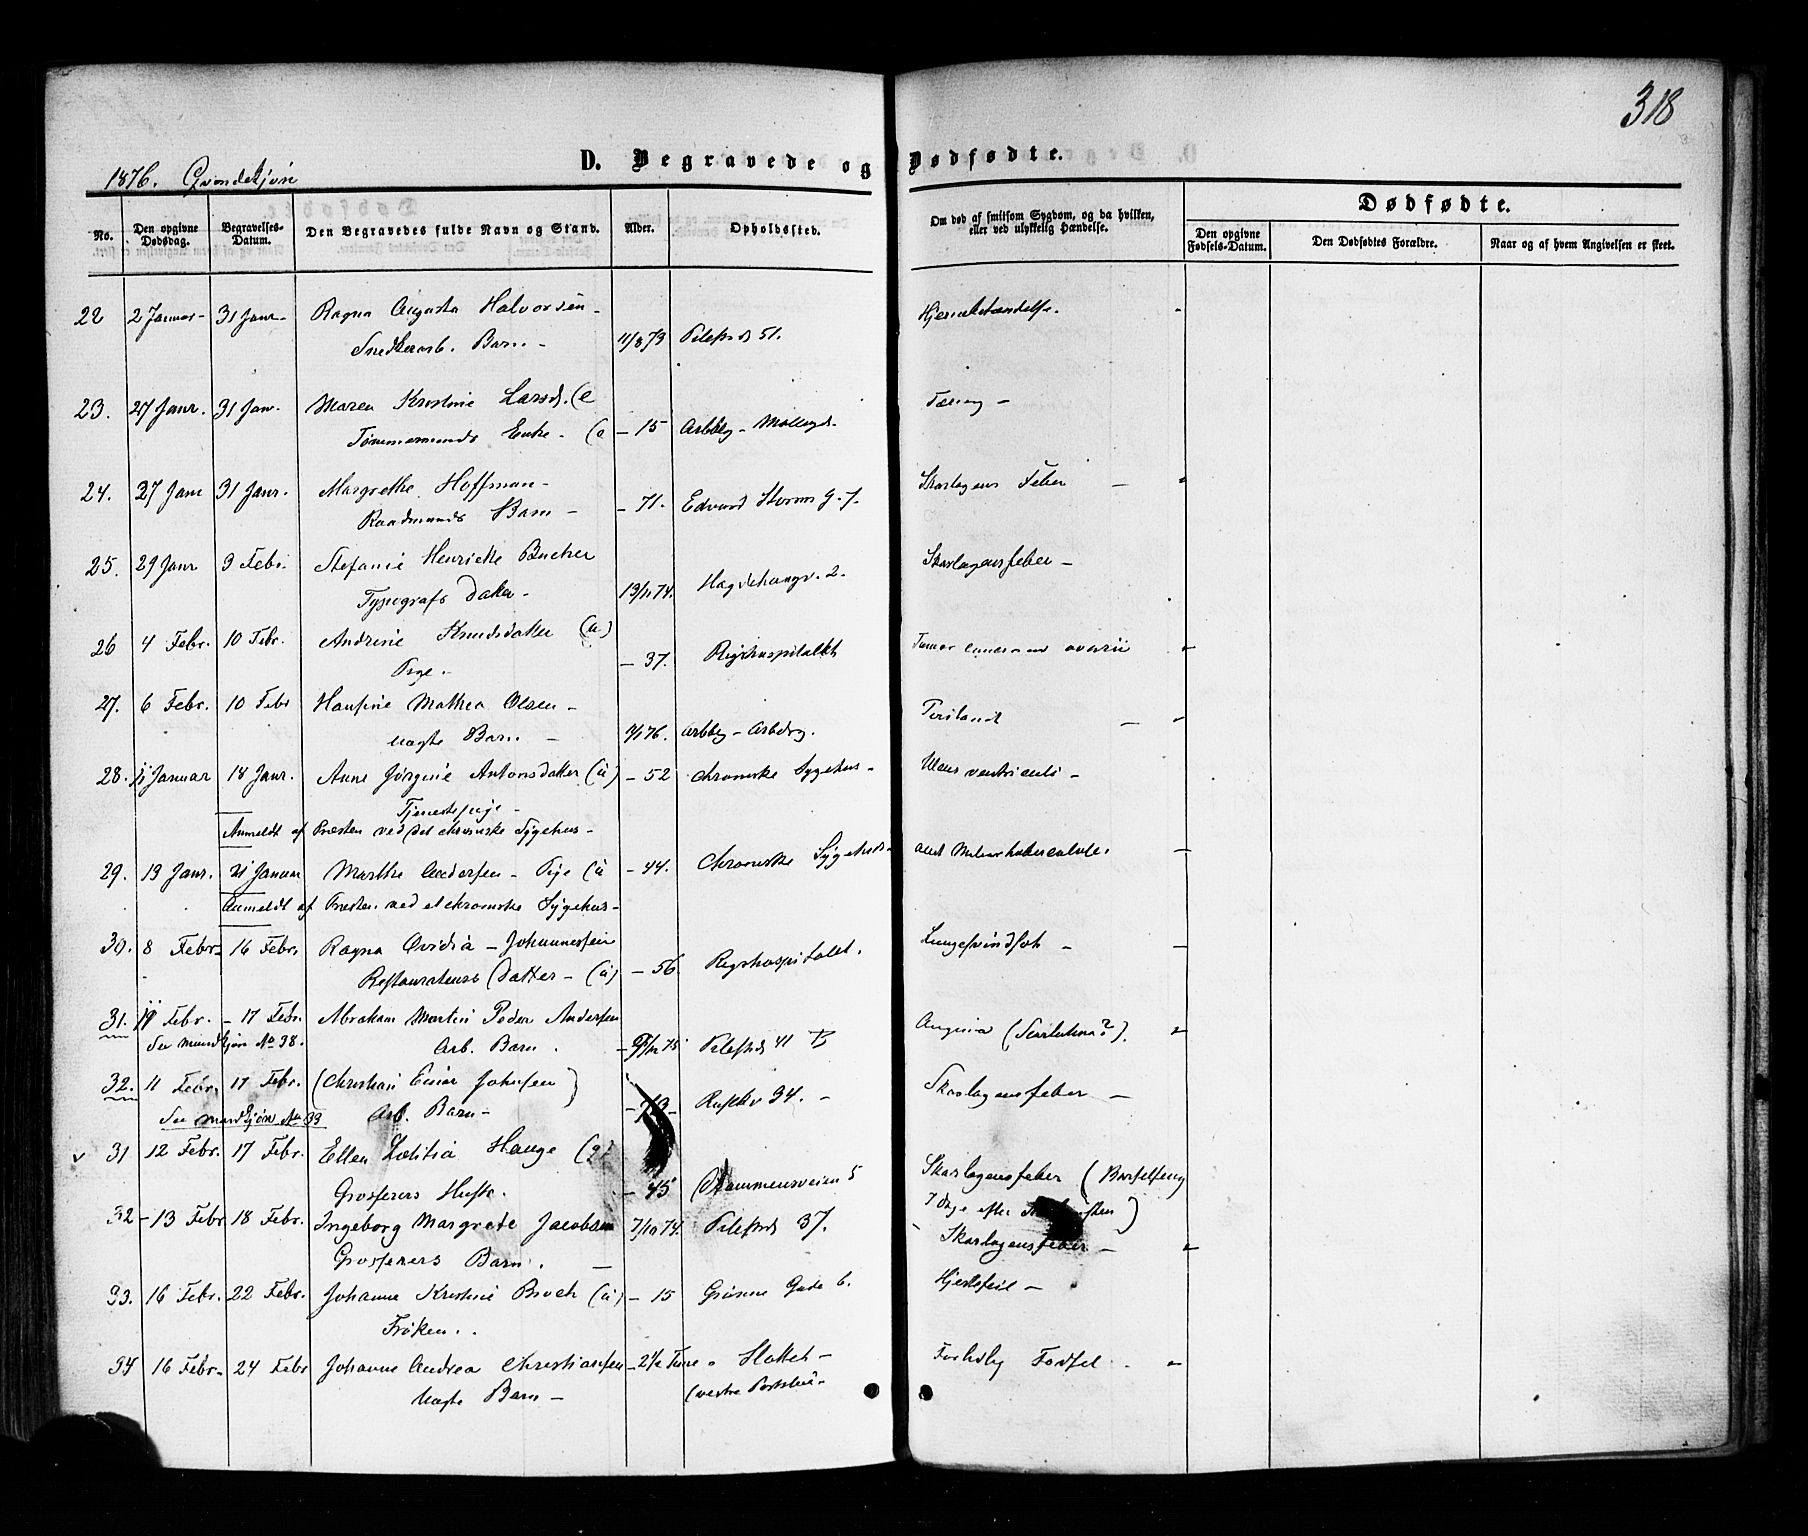 318
D. Begravede og Dødfødte.
1876. Qvindekjøn
No. Den opgivne Dødsdag. Begravelses-Datum. Den Begravedes fulde Navn og Stand. Alder. Opholdssted. Om død af smitsom Sygdom, og da hvilken, eller ved ulykkelig Hændelse.
Dødfødte.
Den opgivne Fødsels-Datum. Den Dødfødtes Forældre. Naar og af hvem Angivelsen er skeet.
22 2 Januar - 31 Janr - Ragna Augusta Halvorsen -
Snedkerarb. Barn - 11/8 73 Pilestrd 51.
23. 27 Janr. 31 Jan. Maren Kristine Larsd. (e Tæring -
Tømmermands Enke - - 15 Arbbg - Møllergd.
24. 27 Jan 31 Janr. Margrethe Hoffman - Skarlagens Feber -
Raadmands Barn - - 71. Edvard Storms G. 7.
25. 29 Janr 3 Febr. Stefanie Henriette Bucher Skarlagensfeber -
Typografs Datter - 13/11 74. Hægdehaugv. 2.
26 4 Febr. 10 Febr. Andrine Knudsdatter (u) Tumor ovarii
Pige. - 37. Rigshospitalet
27. 6 Febr. 10 Febr Hansine Mathea Olsen -
uægte Barn - Arbbg -
28. 11 Januar 18 Janr. Anne Jørgine Antonsdatter (u) - 52 chroniske Sygehus - Ulcus ventriculi -
Tjenestepige -
Anmeldt af Præsten ved det chroniske Sygehus -
29. 13 Janr. 21 Januar Marthe Andersen - Pige (u - 44. chroniske Sygehus -
Anmeldt af Præsten ved et chroniske Sygehus -
30. 8 Febr - 16 Febr. Ragna Ovidia - Johannesen Lungesvindsot -
Restaurateurs Datter - (u) - 56 Rigshospitalet.
31. 11 Febr. - 17 Febr. Abraham Martin Peder Andersen Angina (Scarlatina?).
See Mandkjøn No 38. Arb. Barn. Pilestrd 41 B
32. 11 Febr. 17 Febr. (Christian Einar Johnsen) Skarlagensfeber -
See Mandkjøn No 39 Arb. Barn - - 73 - Ruseløv 34. -
v 31 12 Febr. 17 Febr. Ellen Lætitia Hauge (g) Skarlagensfeber (Barselseng
Grosserers Hustr. - 45 Drammensveien 5 7 Dage efter)
32 - 13 Febr 18 Febr. Ingeborg Margrete Jacobsen 7/10 74. Pilestrd 37. Skarlagensfeber -
Grosserers Barn. -
33. 16 Febr. 22 Febr. Johanne Kristine Broch (u) - 15 Grønne Gade 6. Hjertefeil -
Frøken.
34 16 Febr. 24 Febr Johanne Andrea Christiansen - 2 1/2 Time Slottet - Forhdlig Fødsel
Uægte Barn - (vestre Portstue -